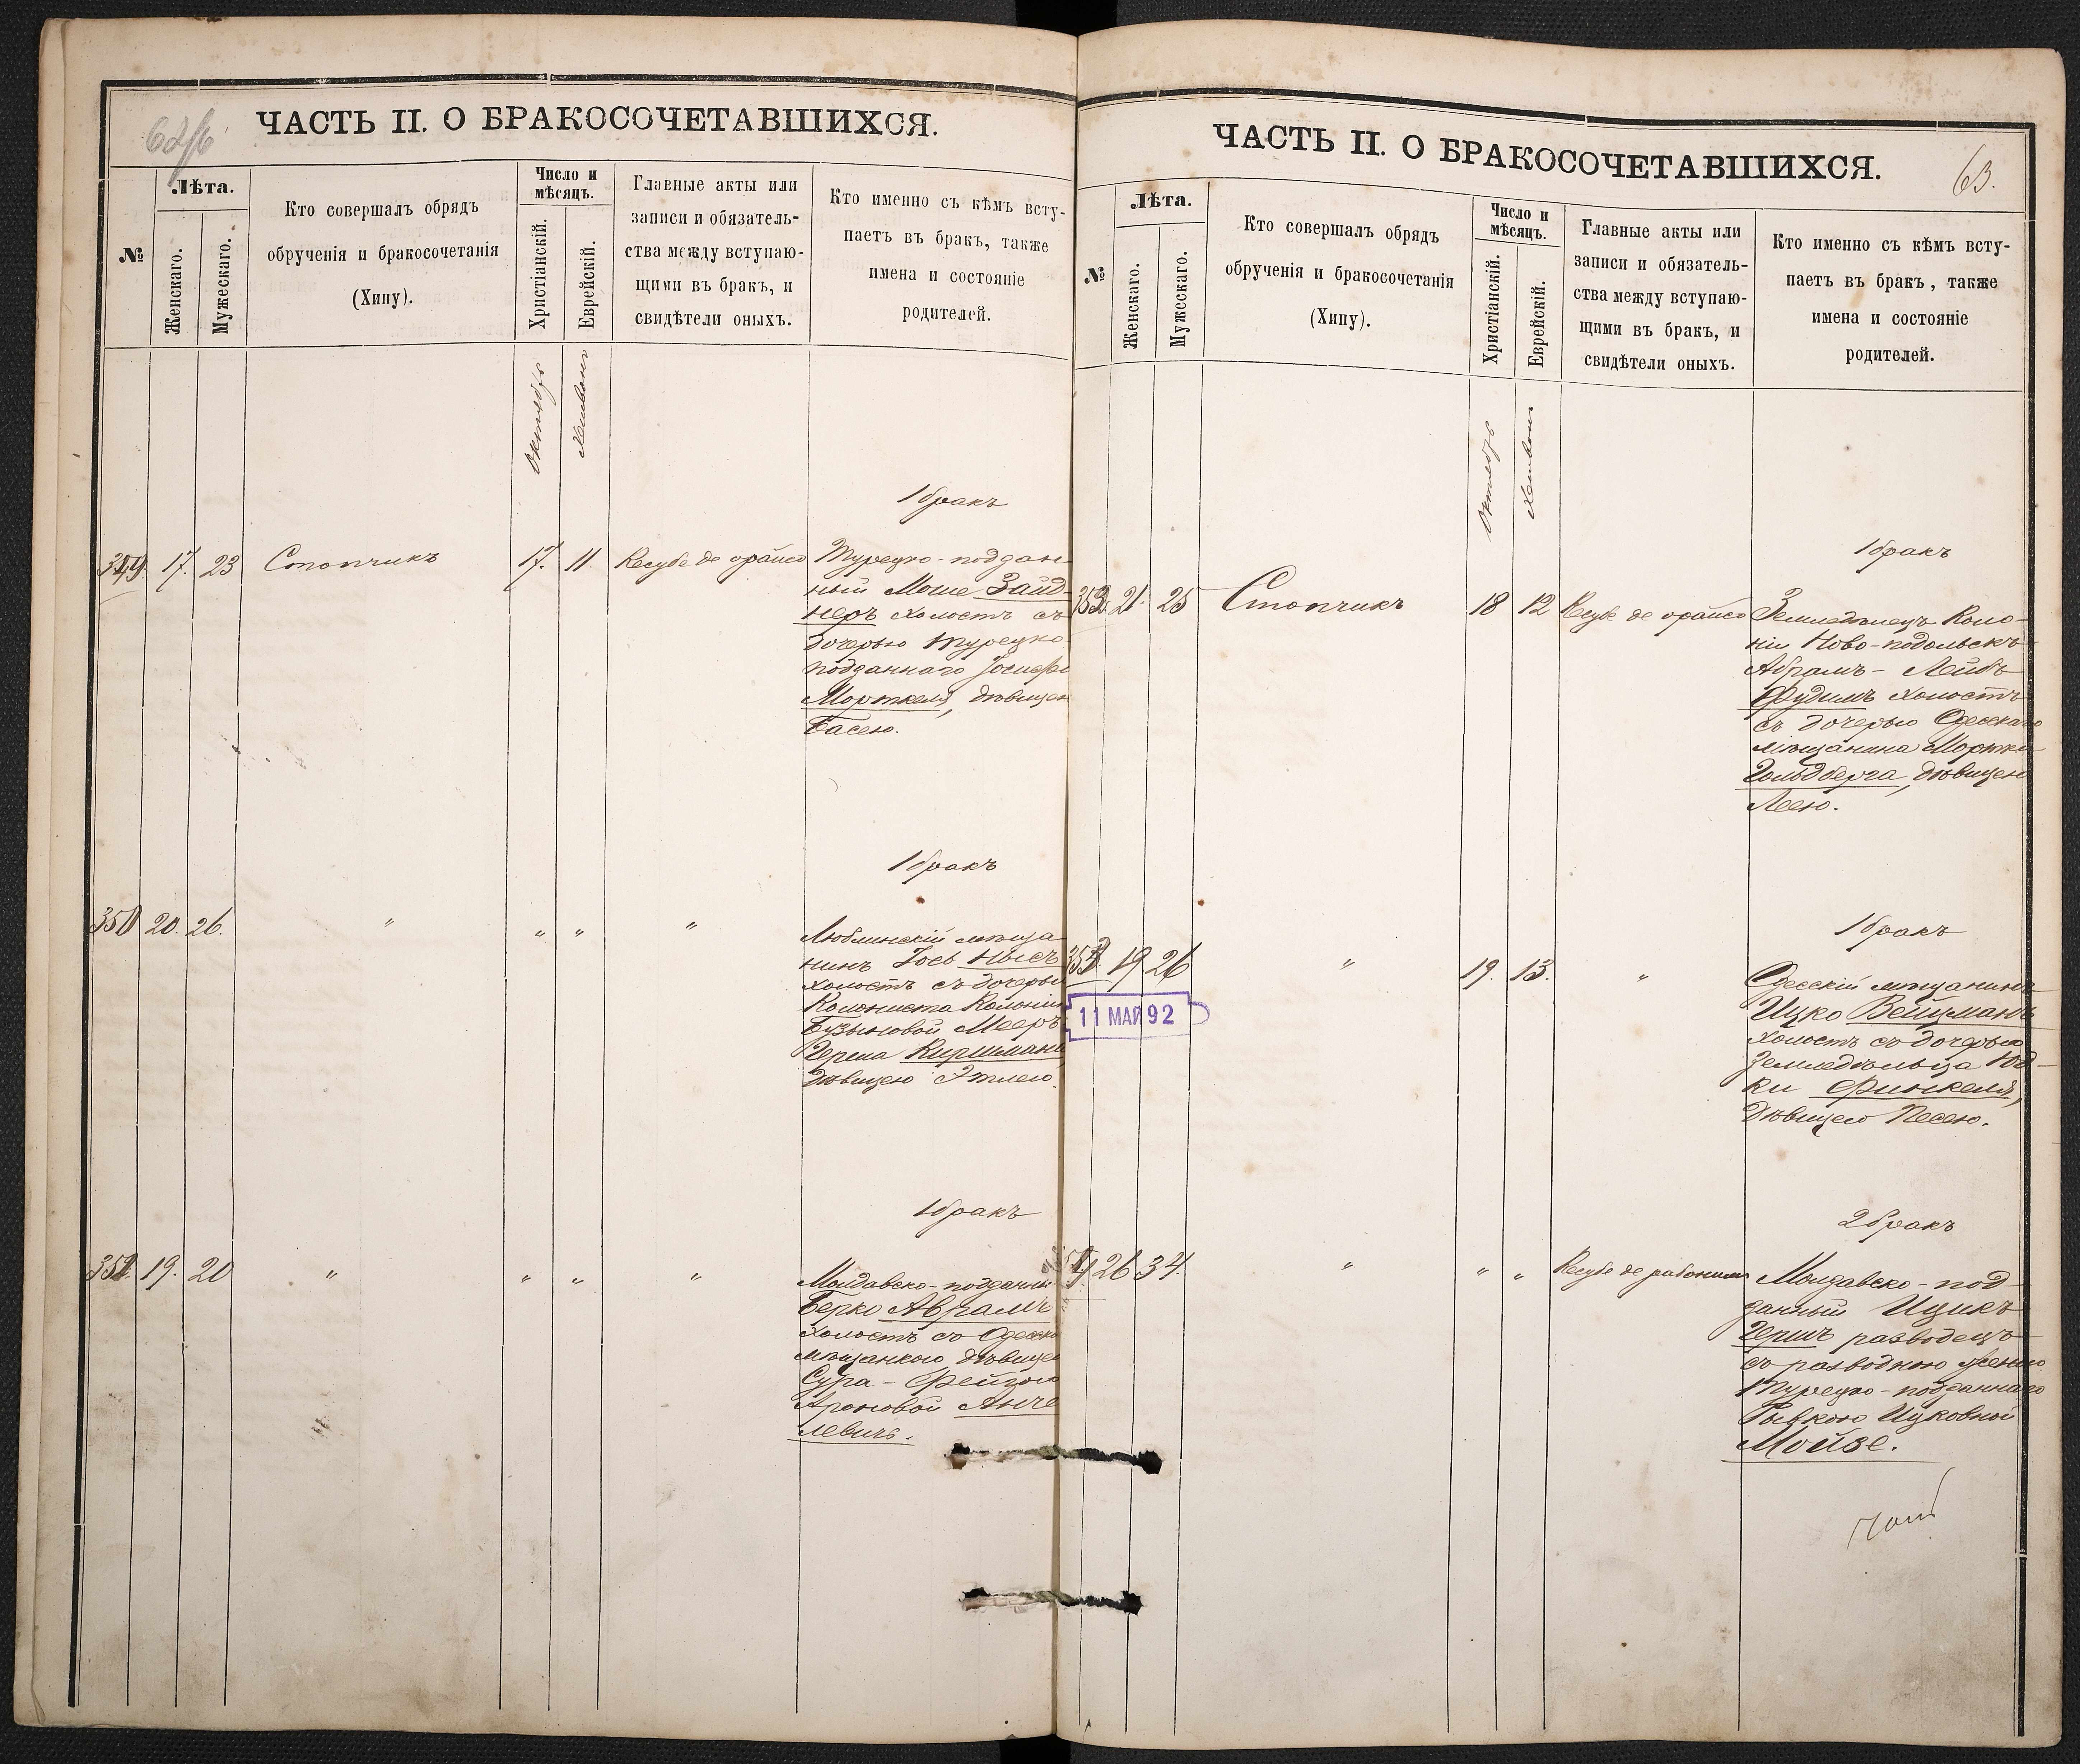 62/б
ЧАСТЬ II. О БРАКОСОЧЕТАВШИХСЯ.
№
Лѣта.
Женскаго.
Мужескаго.
Кто совершалъ обрядъ
обрученія и бракосочетанія
(Хипу).
Число и
мѣсяцъ.
Христіанскій.
Еврейскій.
Главные акты или
записи и обязатель-
ства между вступаю-
щими въ бракъ, и
свидѣтели оныхъ.
Кто именно съ кѣмъ всту-
паетъ въ бракъ, также
имена и состояніе
родителей.
Октябрь
Хешвонъ
1 бракъ
349. 17. 23 Стопчикъ 17. 11. Кесубе де орайсо
Турецко-поддан
ный Моше Зайд-
неръ холостъ съ
дочерью турецко
подданнаго Іосифа
Морткеля, дѣвицею
Басею.
1 бракъ
350 20. 26. " " " "
Люблинскій мѣща
нинъ Іось Нысъ
холостъ съ дочерью
Колониста Колоніи
Бузыновой Мееръ
Герша Киршмана
дѣвицею Этлею.
1 бракъ
351. 19. 20 " " " "
Молдавско-подданный
Берко Аврамъ
холостъ съ Одесско
мѣщанкою дѣвицею
Сура-Фейгою
Ароновой Анче
левичъ.
ЧАСТЬ II. О БРАКОСОЧЕТАВШИХСЯ.
63.
№
Лѣта.
Женскаго.
Мужескаго.
Кто совершалъ обрядъ
обрученія и бракосочетанія
(Хипу).
Число и
мѣсяцъ.
Христіанскій.
Еврейскій.
Главные акты или
записи и обязатель-
ства между вступаю-
щими въ бракъ, и
свидѣтели оныхъ.
Кто именно съ кѣмъ всту-
паетъ въ бракъ, также
имена и состояніе
родителей.
Октябрь
Хешвонъ
1 бракъ
352 21. 25 Стопчикъ 18 12 Кесубе де орайсо
Земледѣлецъ Коло-
ніи Ново-подольскъ
Абрамъ-Лейбъ
Фудимъ холостъ
съ дочерью Одесскаго
мѣщанина Мортки
Гольдберга, дѣвицею
Леею.
1 бракъ
353 19 26 " 19. 13. "
11 МАЙ 92
Одесскій мѣщанинъ
Ицко Вейцманъ
холостъ съ дочерью
земледѣльца Юд-
ки Финкеля,
дѣвицею Песею.
2 бракъ
354 26 34. " " " Кесубе де рабонимъ
Молдавско-под
данный Ицикъ
Гершъ разводецъ
съ разводною женою
Турецко-подданнаго
Рывкою Ицковной
Мойзе.